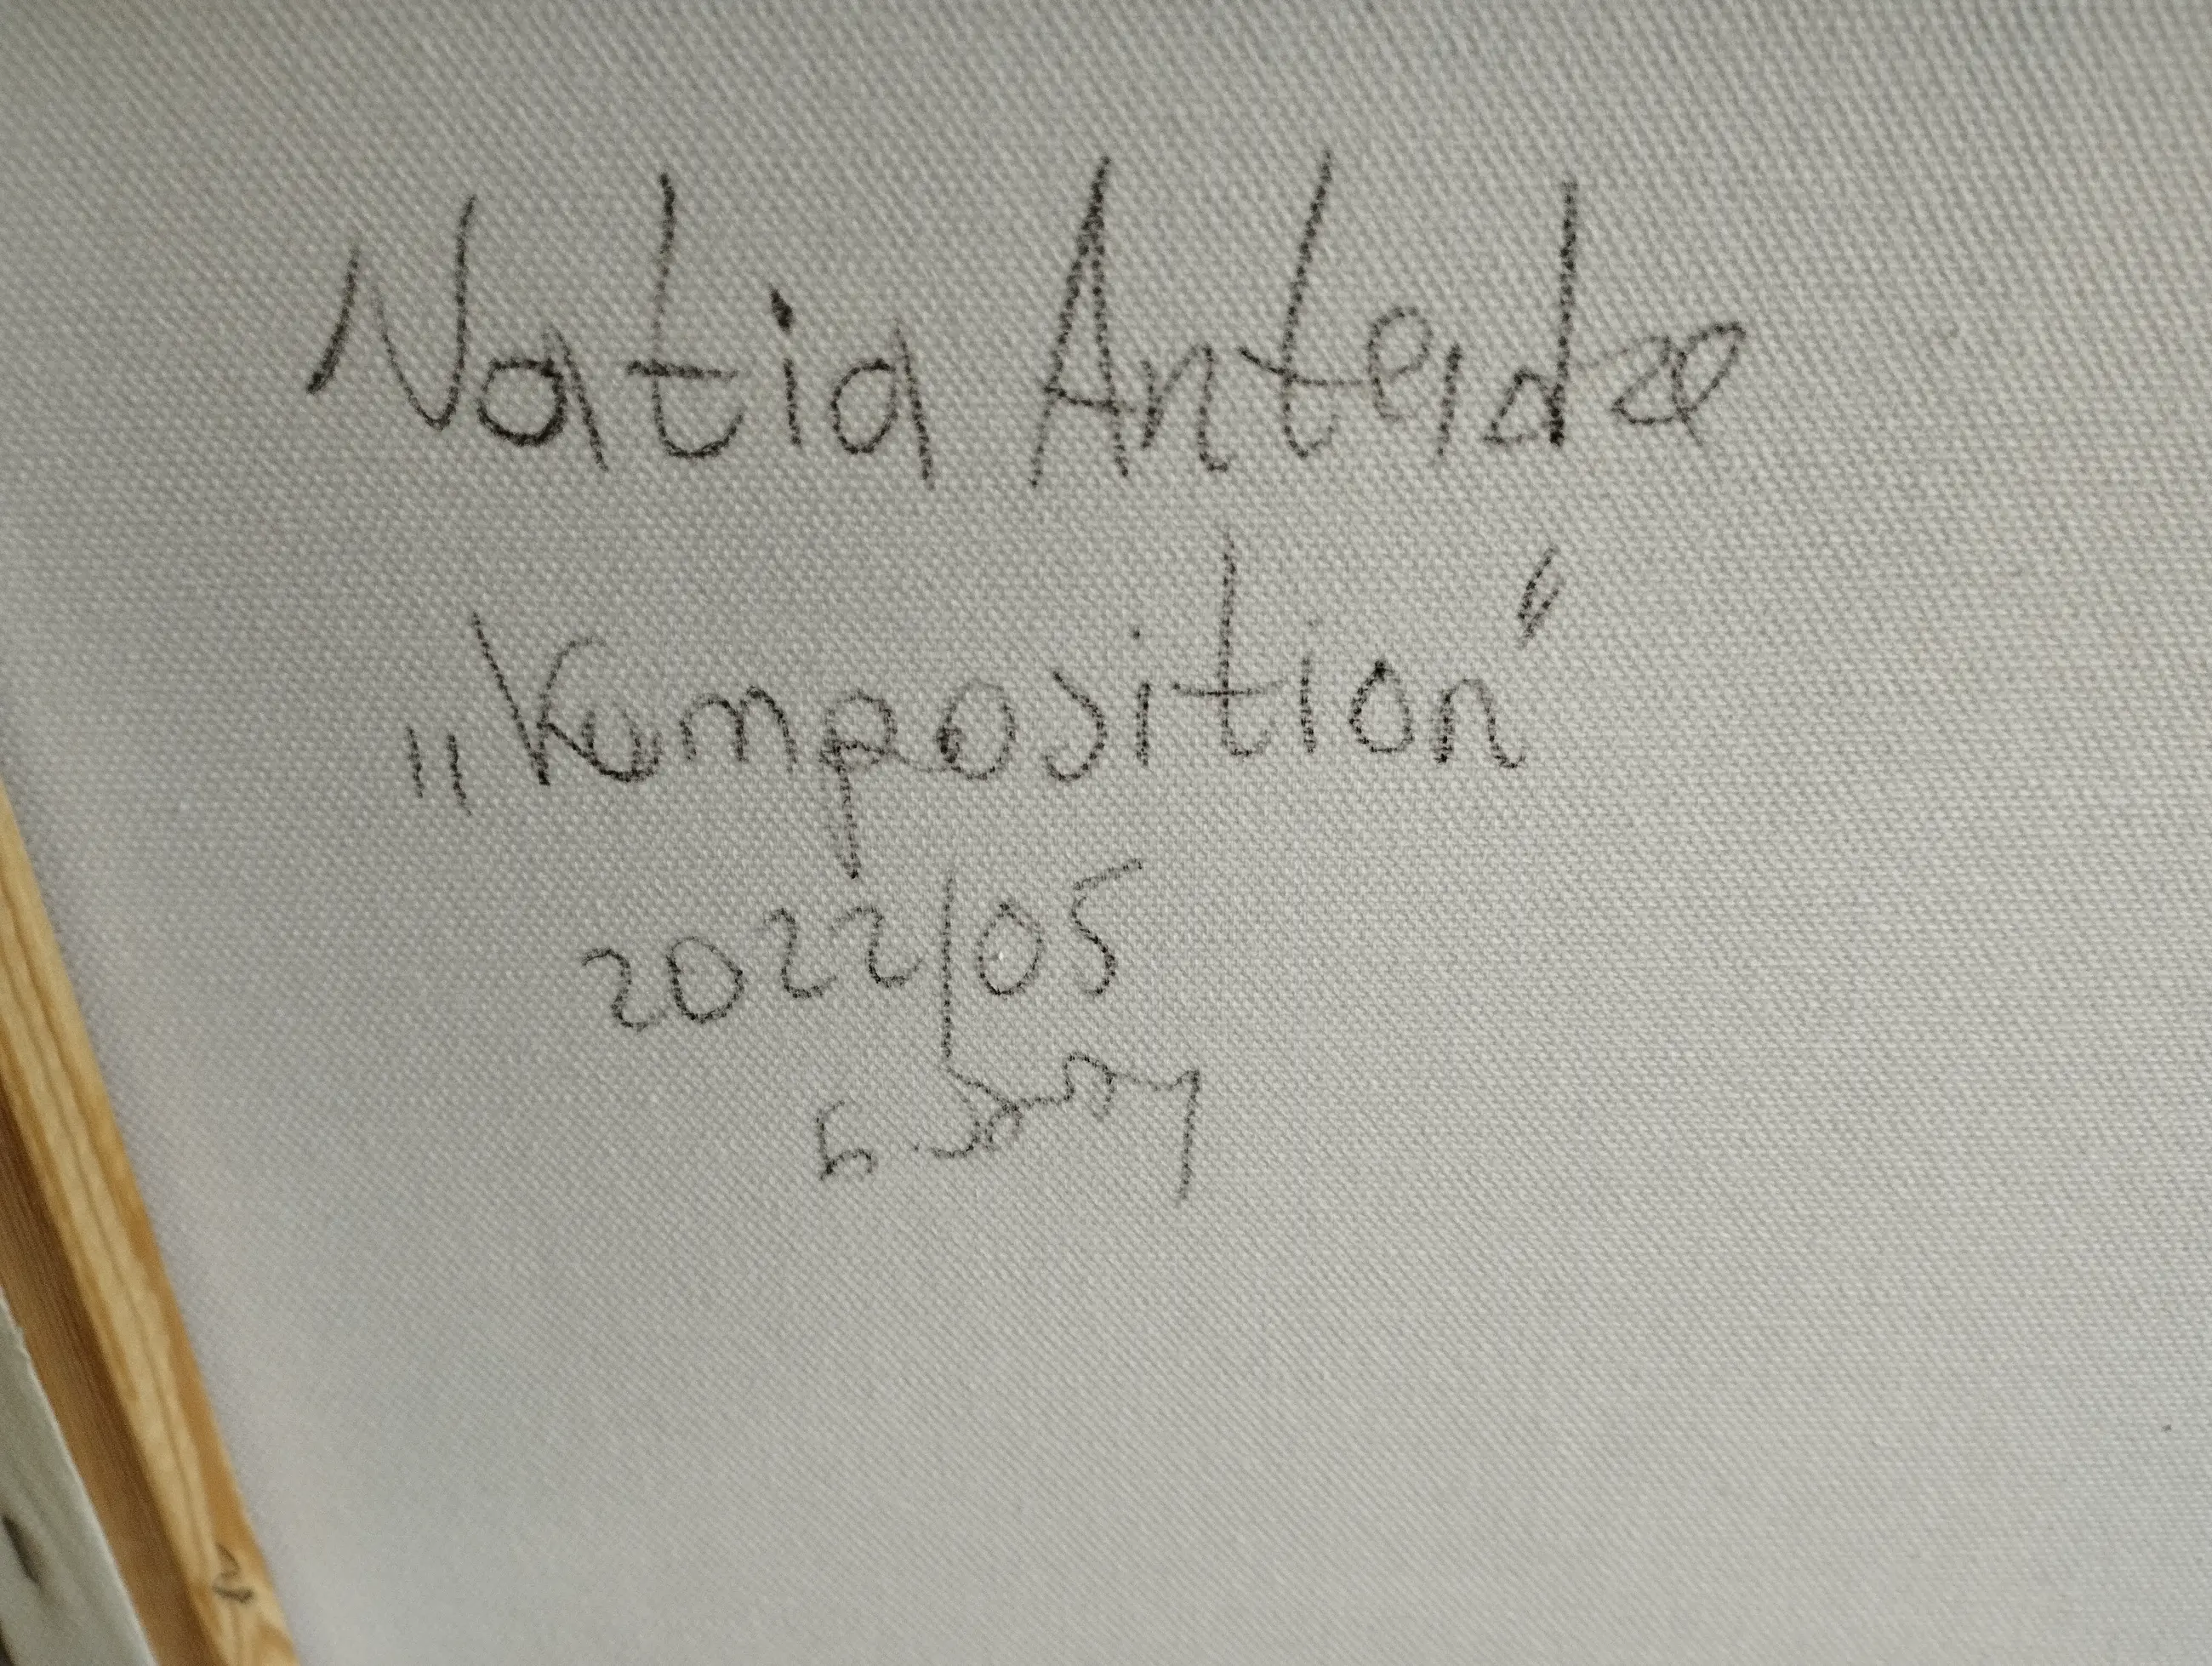 Natia Anteidze
„Komposition“
2022/05